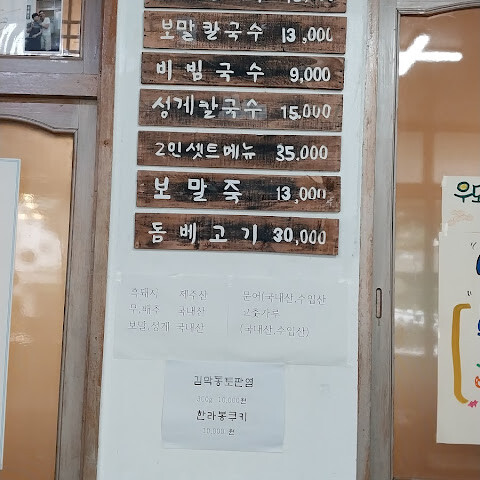 보말칼국수 13,000
비빔국수 9,000
성게칼국수 15,000
2인셋트메뉴 35,000
보말죽 13,000
돔베고기 30,000
흑돼지 제주산
무,배추 국내산
보말,성게 국내산
문어(국내산,수입산
고춧가루
(국내산,수입산)
300g 10,000원
한라봉쿠키
10,000원
우도